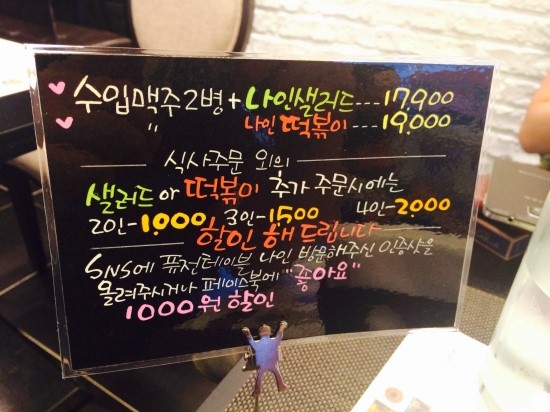 수입맥주 2병 + 나인샐러드 --- 17,900
〃 나인 떡볶이 --- 19,000
식사주문 외의
샐러드 or 떡볶이 추가 주문시에는
2인-1,000 3인-1,500 4인-2,000
할인 해 드립니다
SNS에 퓨전테이블 나인 방문해주신 인증샷을
올려주시거나 페이스북에 "좋아요"
1000원 할인